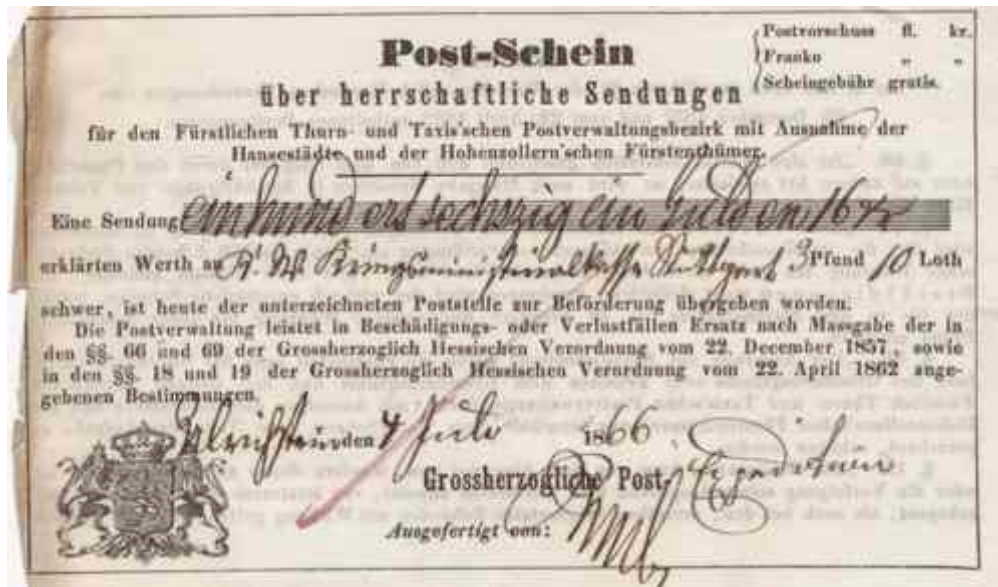 Post-Schein
Postvorschuss fl. kr.
Franko " "
Scheingebühr gratis.
über herrschaftliche Sendungen
für den Fürstlichen Thurn- und Taxis'schen Postverwaltungsbezirk mit Ausnahme der
Hansestädte und der Hohenzollern'schen Fürstenthümer.
Eine Sendung einhundert sechszig ein Gulden
erklärten Werth an K. W. Kriegsministerialkasse Stuttgart 3 Pfund 10 Loth
schwer, ist heute der unterzeichneten Poststelle zur Beförderung übergeben worden.
Die Postverwaltung leistet in Beschädigungs- oder Verlustfällen Ersatz nach Massgabe der in
den §§. 66 und 69 der Grossherzoglich Hessischen Verordnung vom 22. December 1857, sowie
in den §§. 18 und 19 der Grossherzoglich Hessischen Verordnung vom 22. April 1862 ange-
gebenen Bestimmungen.
Ulrichstein den 4 Juli 1866
Grossherzogliche Post- Expedition
Ausgefertigt von: